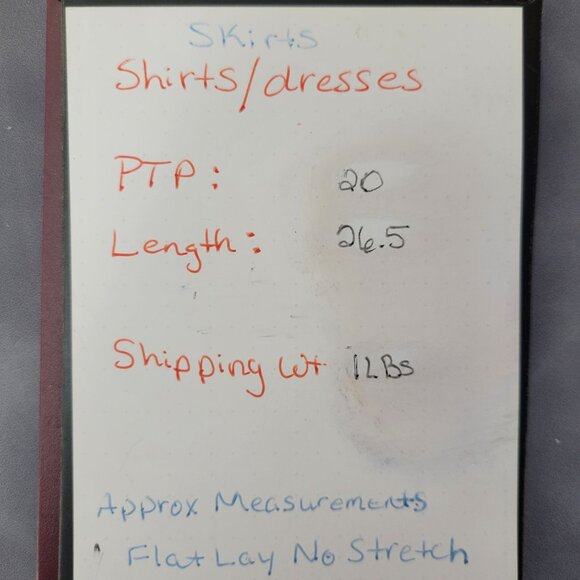 Skirts
Shirts/dresses
PTP: 20
Length: 26.5
Shipping Wt 1LBs
Approx Measurements
Flat Lay No Stretch